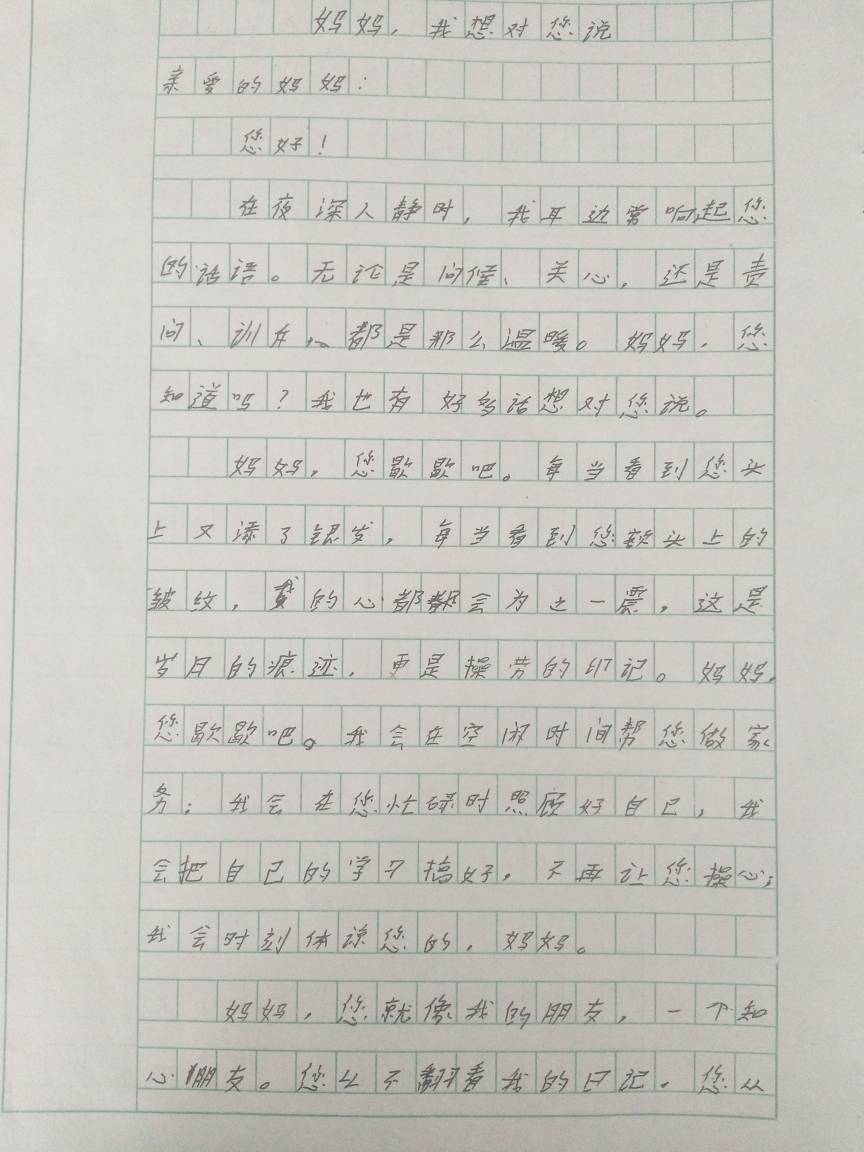 妈妈，我想对您说
亲爱的妈妈：
您好！
在夜深人静时，我耳边常响起您
的话语。无论是问候、关心，还是责
问、训斥，都是那么温暖。妈妈，您
知道吗？我也有好多话想对您说。
妈妈，您歇歇吧。每当看到您头
上又添了银发，每当看到您额头上的
皱纹，我的心都会为之一震，这是
岁月的痕迹，更是操劳的印记。妈妈，
您歇歇吧。我会在空闲时间帮您做家
务；我会在您忙碌时照顾好自己，我
会把自己的学习搞好，不再让您操心；
我会时刻体谅您的，妈妈。
妈妈，您就像我的朋友，一个知
心朋友。您从不翻看我的日记，您从